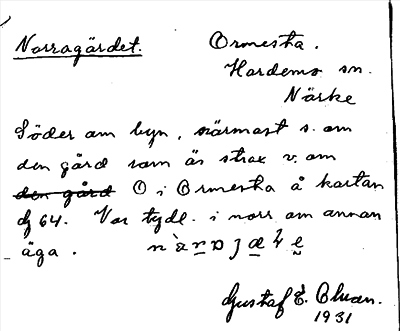 Norragärdet.
Ormesta.
Hardemo sn.
Närke
Söder om byn, närmast s. om
den gård som är strax v. om
den gård O i Ormesta å kartan
df 64. Var tydl. i norr om annan
äga.
Gustaf E.
1931